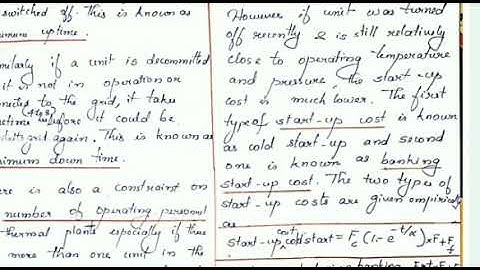 switched off. This is known as
uptime.
if a unit is decommitted
it is not in operation or
to the grid, it takes
(4 hrs)
before it could be
grid again. This is known as
down time.
is also a constraint on
number of operating personnel
thermal plants especially if
more than one unit in the
However if unit was turned
off recently & is still relatively
close to operating temperature
and pressure, the start-up
cost is much lower. The first
type of start-up cost is known
as cold start-up and second
one is known as banking
start-up cost. The two types of
start-up costs are given empirically
as
start-up cost cold start = Fc (1-e^-t/α) x F + Ff